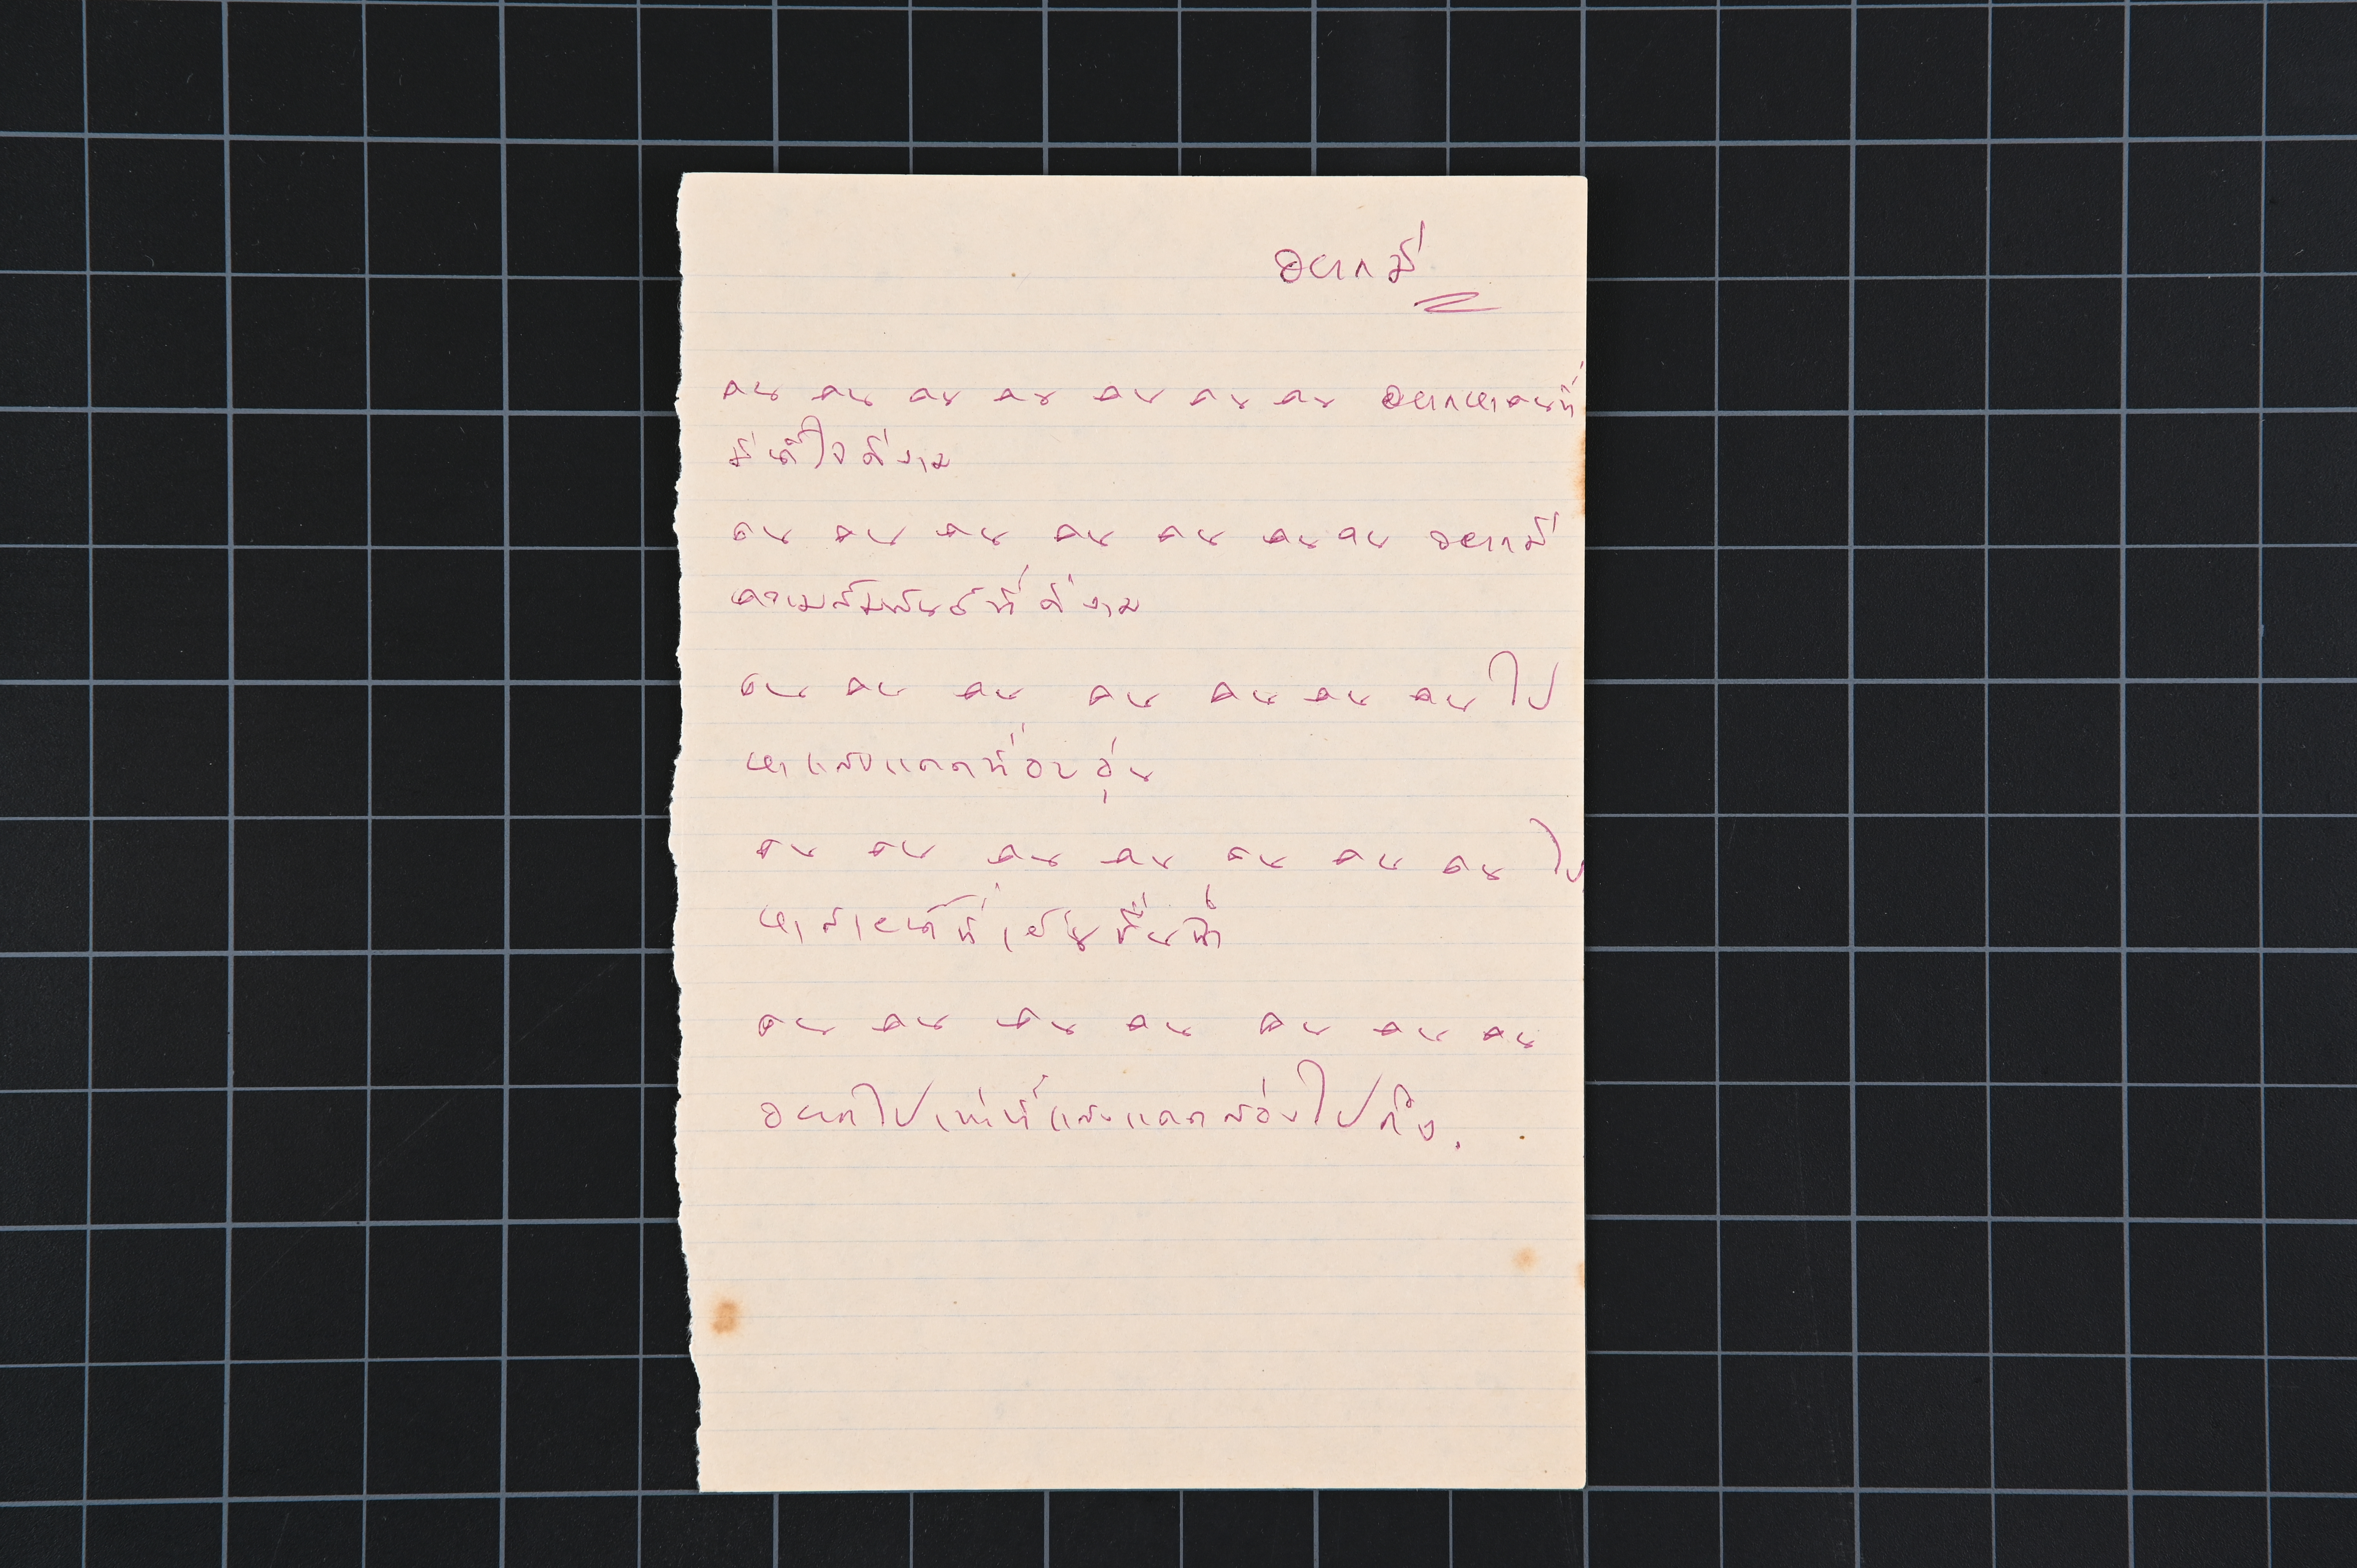 อยากมี
คน คน คน คน คน คน คน อยากหาคนที่
มีน้ำใจดีงาม
คน คน คน คน คน คน คน อยากมี
ความสัมพันธ์ที่ดีงาม
คน คน คน คน คน คน คน ไป
หาแสงแดดที่อบอุ่น
คน คน คน คน คน คน คน ไป
หาสายน้ำที่เย็นชื่นฉ่ำ
คน คน คน คน คน คน คน
อยากไปเท่าที่แสงแดดส่องไปถึง.